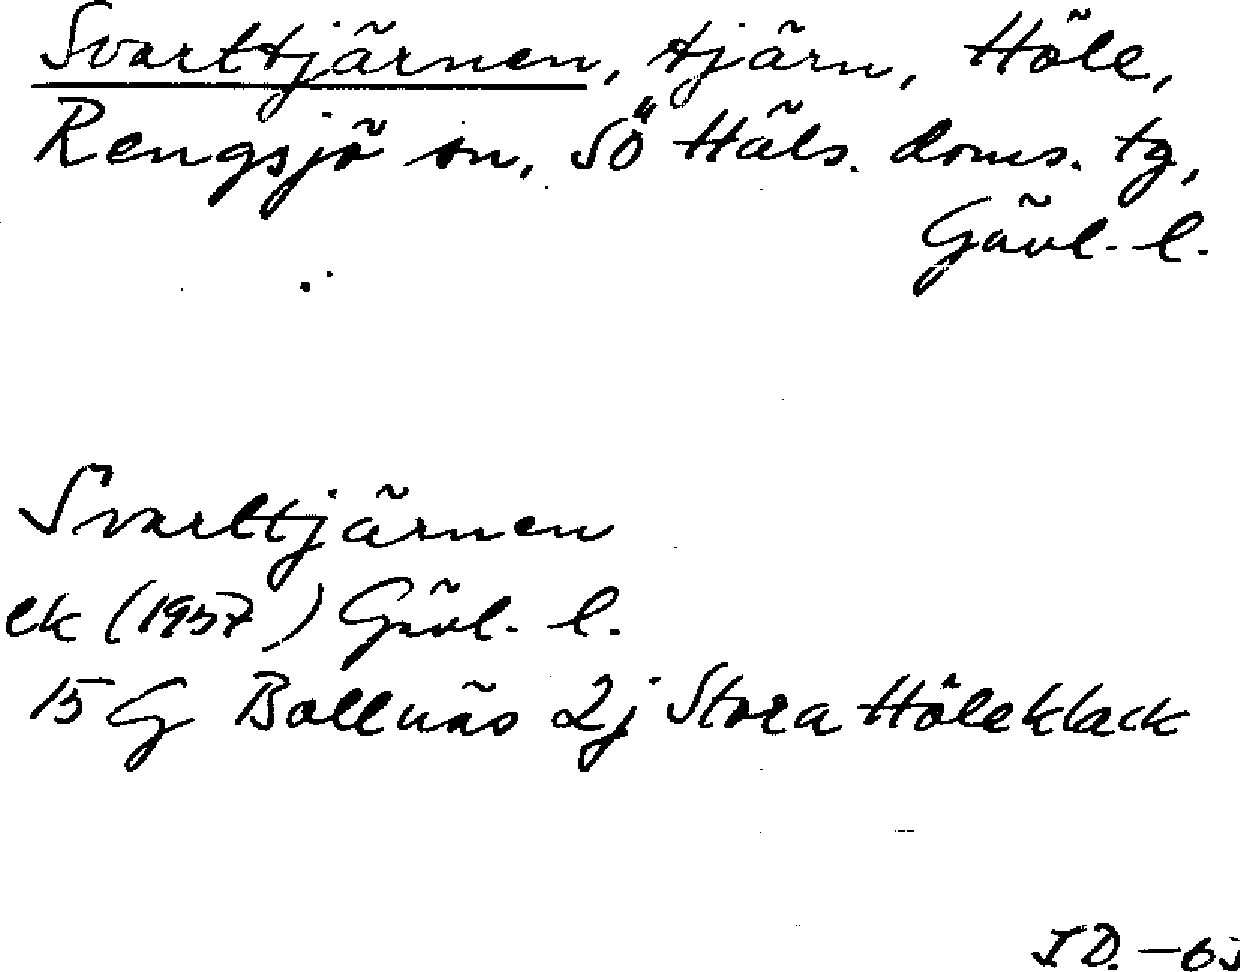 Svarttjärnen, tjärn, Höle,
Rengsjö sn, SÖ Häls. doms. tg,
Gävl. l.
Svarttjärnen
ek (1957) Gävl. l.
15 G Bollnäs 2j Stora Höleklack
I D. -